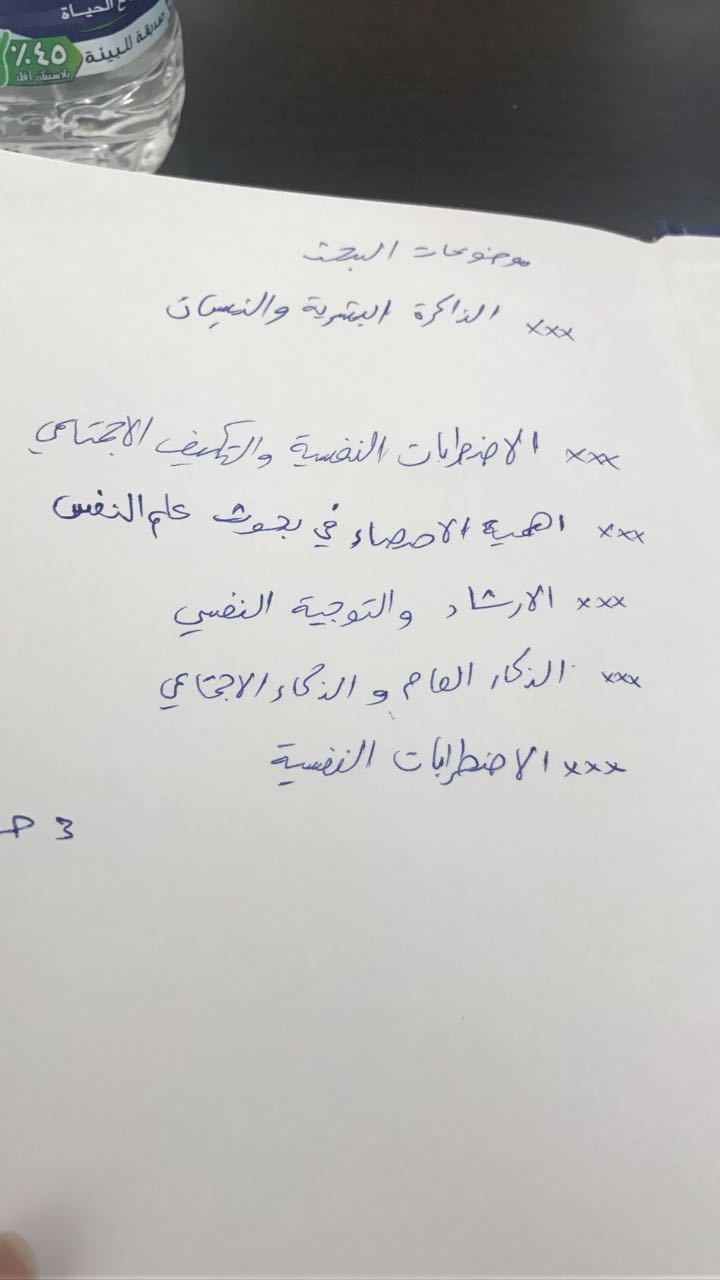 الحياة
صديقة للبيئة
٪٤٥
بلاستيك أقل
موضوعات البحث
xxx الذاكرة البشرية والنسيان
xxx الاضطرابات النفسية والتكيف الاجتماعي
xxx اهمية الاحصاء في بحوث علم النفس
xxx الارشاد والتوجية النفسي
xxx الذكاء العام و الذكاء الاجتماعي
xxx الاضطرابات النفسية
3